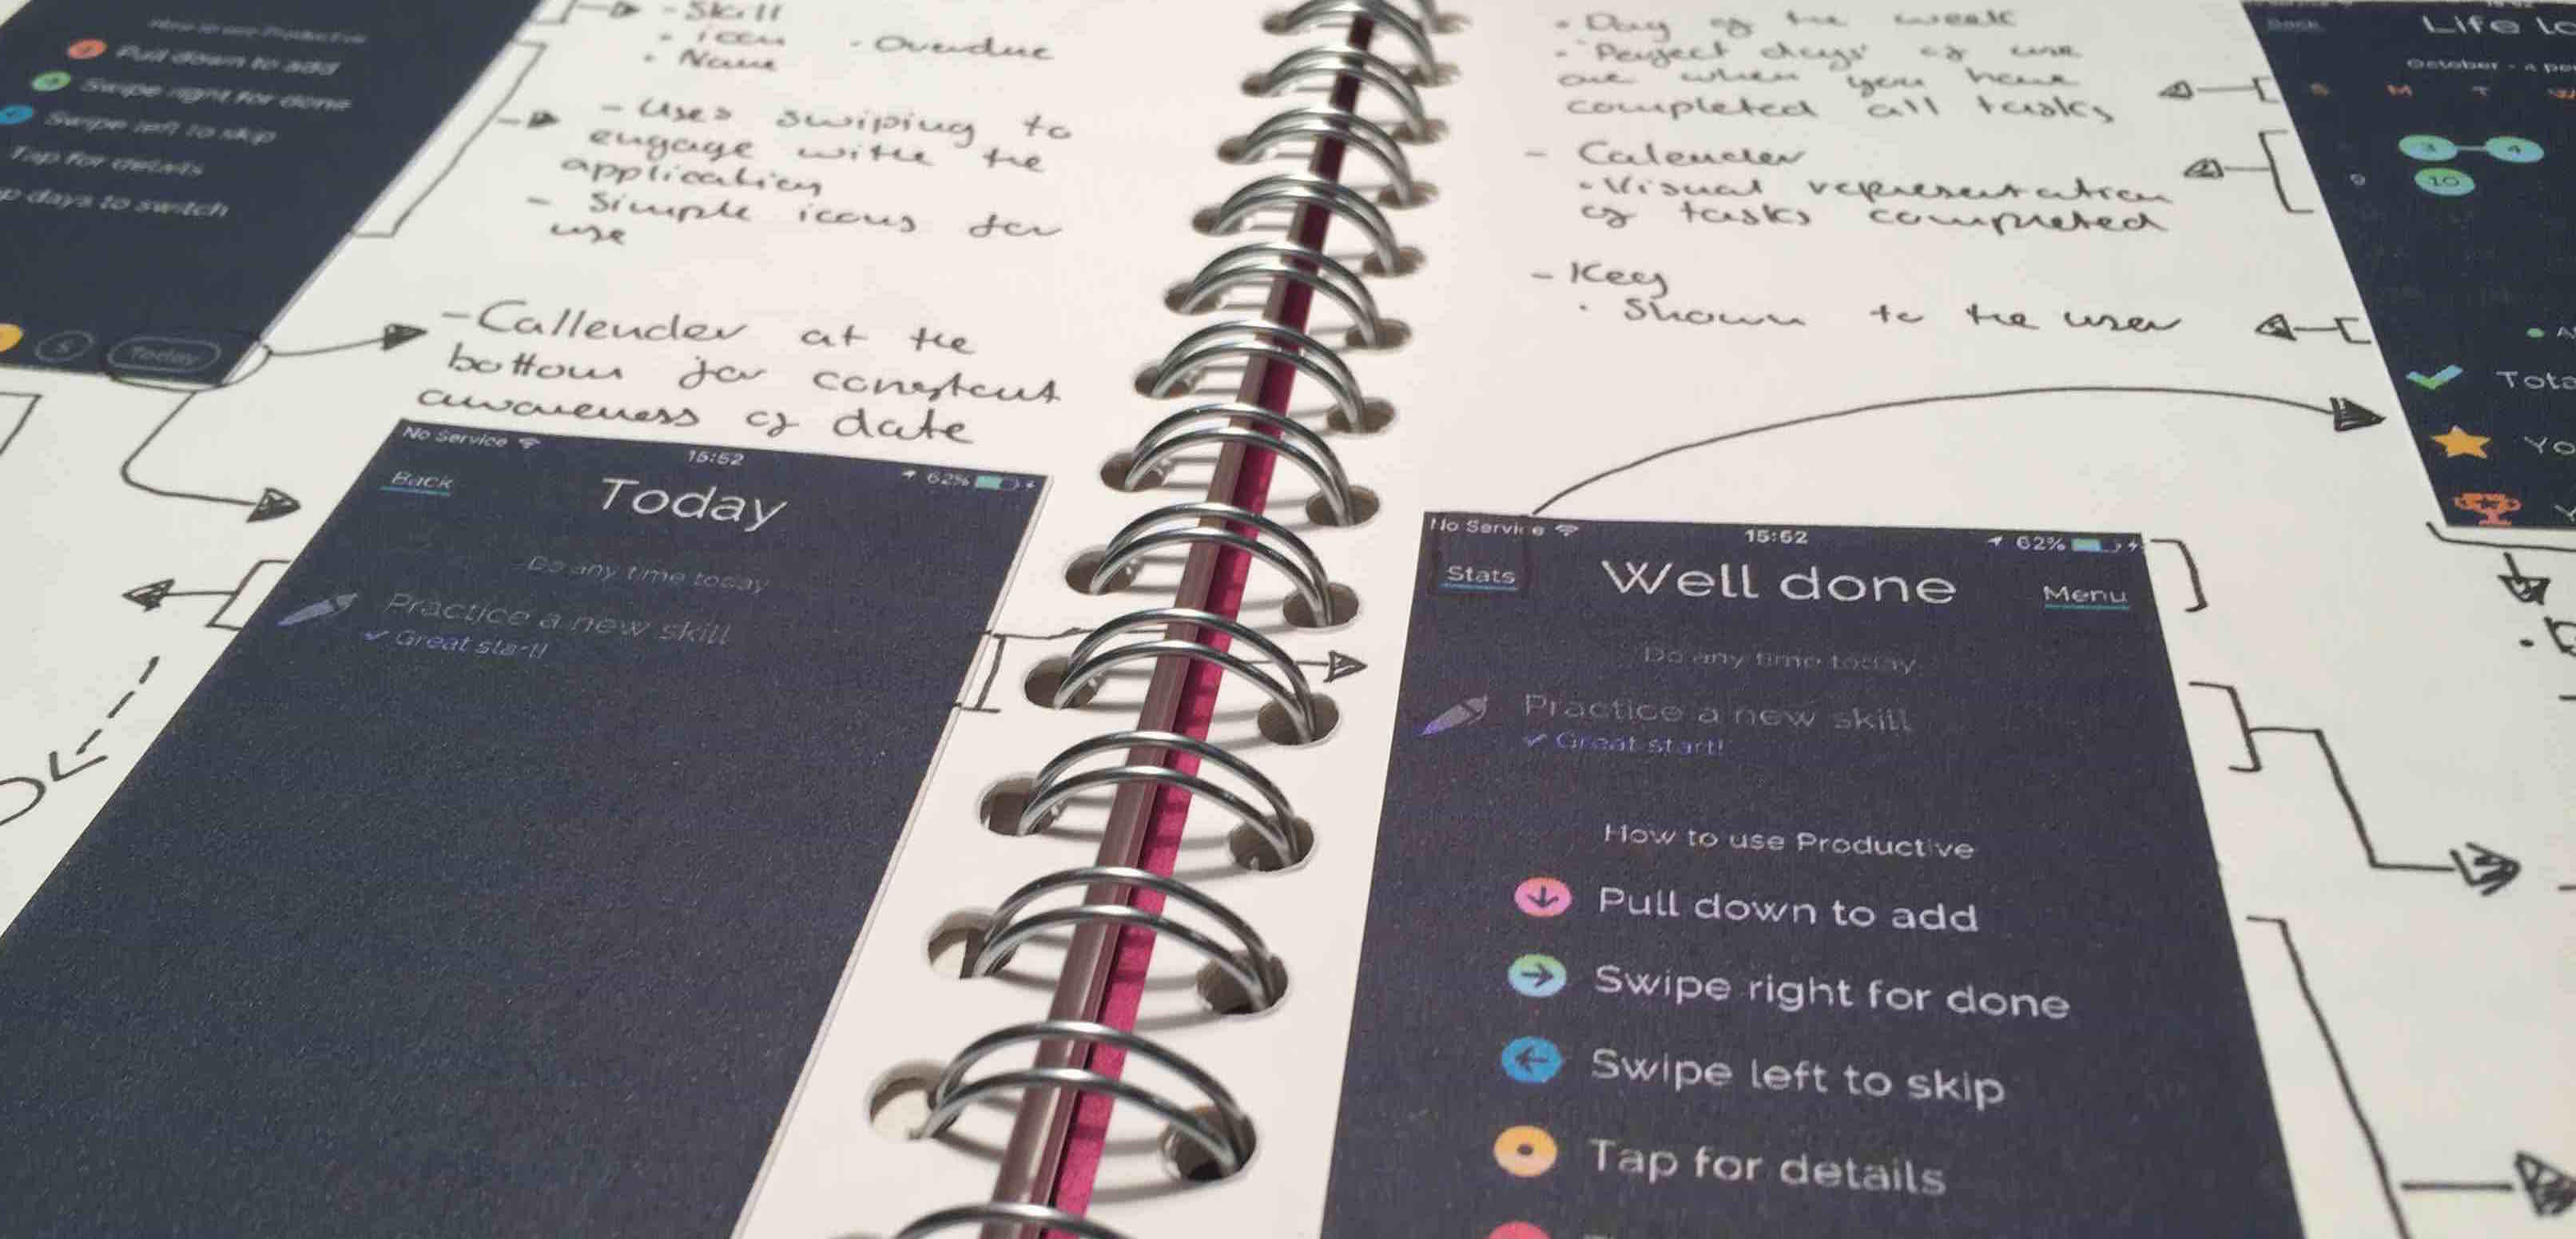 How to use Productive
Pull down to add
Swipe right for done
Swipe left to skip
Tap for details
p days to switch
5
Today
- Skill
• icon - Overdue
• Name
- Uses swiping to
engage with the
application
- Simple icons for
use
- Callender at the
bottom for constant
awareness of date
No Service
15:52
62%
Back
Today
Do any time today
Practice a new skill
✓ Great start!
• Day of the week
• 'Perfect days' of use
are when you have
completed all tasks
- Calender
• Visual representation
of tasks completed
- Key
• Shown to the user
Back
Life lo
October - a pe
S M T W
3 4
9 10
Tota
Yo
No Service
15:52
62%
Stats
Well done
Menu
Do any time today
Practice a new skill
✓ Great start!
How to use Productive
Pull down to add
Swipe right for done
Swipe left to skip
Tap for details